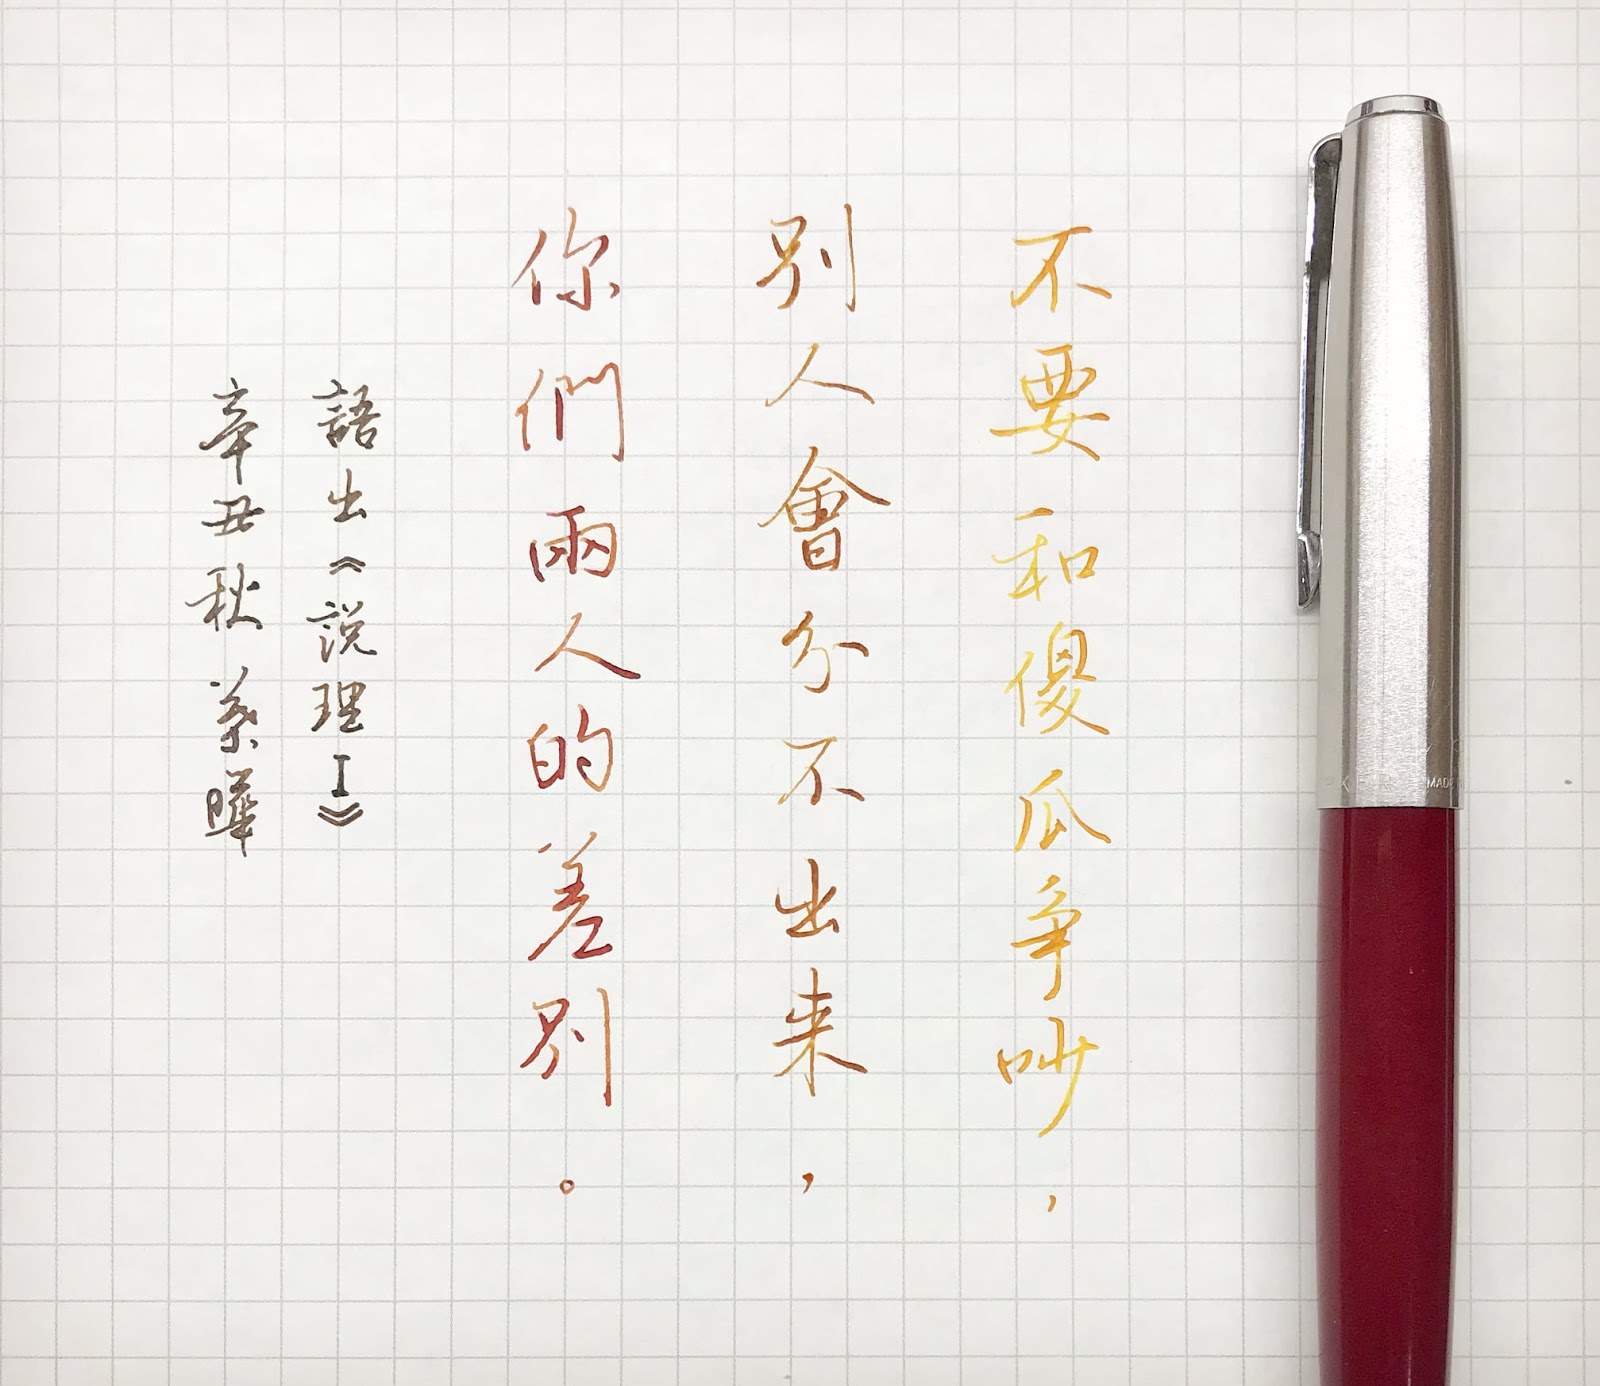 不要和傻瓜爭吵，
別人會分不出来，
你們兩人的差別。
語出《說理I》
辛丑秋 葉曄
MADE